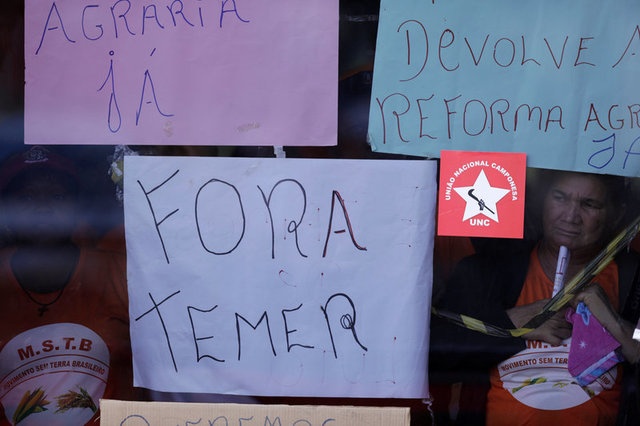 AGRARIA
JÁ
DEVOLVE A
REFORMA AGR
JA
UNIÃO NACIONAL CAMPONESA
UNC
FORA
TEMER
M.S.T.B
MOVIMENTO SEM TERRA BRASILEIRO
M.S.T
MOVIMENTO SEM
QUEREMOS